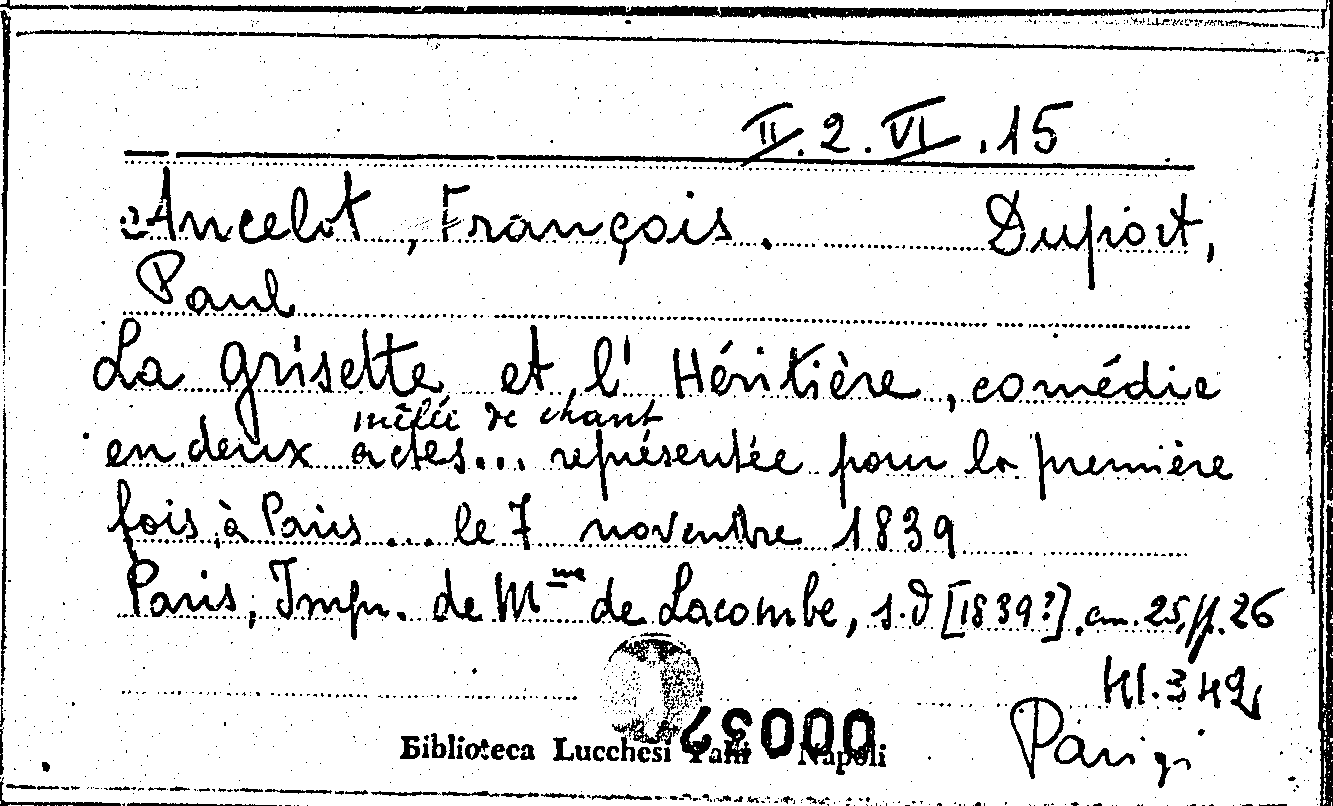 II.2.VI.15
Ancelot, François. Duport,
Paul
La grisette et l'Héritière, comédie
mêlée de chant
en deux actes... représentée pour la première
fois à Paris... le 7 novembre 1839
Paris, Impr. de Mme de Lacombe, s.d [1839?]. cm. 25, ff. 26
H1.342
00037
Biblioteca Lucchesi Palli Napoli
Parigi